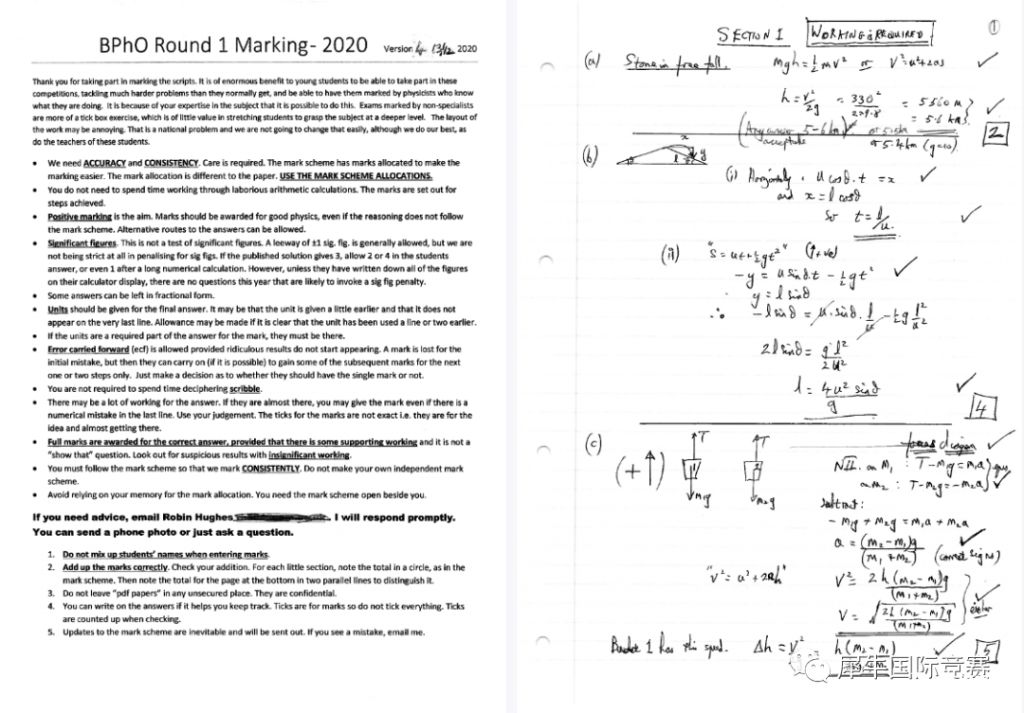 BPhO Round 1 Marking- 2020 Version 4 13/12 2020
Thank you for taking part in marking the scripts. It is of enormous benefit to young students to be able to take part in these
competitions, tackling much harder problems than they normally get, and be able to have them marked by physicists who know
what they are doing. It is because of your expertise in the subject that it is possible to do this. Exams marked by non-specialists
are more of a tick box exercise, which is of little value in stretching students to grasp the subject at a deeper level. The layout of
the work may be annoying. That is a national problem and we are not going to change that easily, although we do our best, as
do the teachers of these students.
• We need ACCURACY and CONSISTENCY. Care is required. The mark scheme has marks allocated to make the
marking easier. The mark allocation is different to the paper. USE THE MARK SCHEME ALLOCATIONS.
• You do not need to spend time working through laborious arithmetic calculations. The marks are set out for
steps achieved.
• Positive marking is the aim. Marks should be awarded for good physics, even if the reasoning does not follow
the mark scheme. Alternative routes to the answers can be allowed.
• Significant figures. This is not a test of significant figures. A leeway of ±1 sig. fig. is generally allowed, but we are
not being strict at all in penalising for sig figs. If the published solution gives 3, allow 2 or 4 in the students
answer, or even 1 after a long numerical calculation. However, unless they have written down all of the figures
on their calculator display, there are no questions this year that are likely to invoke a sig fig penalty.
• Some answers can be left in fractional form.
• Units should be given for the final answer. It may be that the unit is given a little earlier and that it does not
appear on the very last line. Allowance may be made if it is clear that the unit has been used a line or two earlier.
• If the units are a required part of the answer for the mark, they must be there.
• Error carried forward (ecf) is allowed provided ridiculous results do not start appearing. A mark is lost for the
initial mistake, but then they can carry on (if it is possible) to gain some of the subsequent marks for the next
one or two steps only. Just make a decision as to whether they should have the single mark or not.
• You are not required to spend time deciphering scribble.
• There may be a lot of working for the answer. If they are almost there, you may give the mark even if there is a
numerical mistake in the last line. Use your judgement. The ticks for the marks are not exact i.e. they are for the
idea and almost getting there.
• Full marks are awarded for the correct answer, provided that there is some supporting working and it is not a
"show that" question. Look out for suspicious results with insignificant working.
• You must follow the mark scheme so that we mark CONSISTENTLY. Do not make your own independent mark
scheme.
• Avoid relying on your memory for the mark allocation. You need the mark scheme open beside you.
If you need advice, email Robin Hughes. I will respond promptly.
You can send a phone photo or just ask a question.
1. Do not mix up students' names when entering marks.
2. Add up the marks correctly. Check your addition. For each little section, note the total in a circle, as in the
mark scheme. Then note the total for the page at the bottom in two parallel lines to distinguish it.
3. Do not leave "pdf papers" in any unsecured place. They are confidential.
4. You can write on the answers if it helps you keep track. Ticks are for marks so do not tick everything. Ticks
are counted up when checking.
5. Updates to the mark scheme are inevitable and will be sent out. If you see a mistake, email me.
SECTION 1 WORKING IS REQUIRED ①
(a) Stone in free fall. mgh = ½mv² or v² = u² + 2as ✓
h = v²/2g = 330²/2×9.8 = 5560 m = 5.6 km ✓
(Any answer 5-6 km acceptable) 2
or 5.4 km (g=10)
(b) x l y
(i) Horizontally, u cosθ.t = x ✓
and x = l cosθ
So t = l/u. ✓
(ii) "s = ut + ½gt²" (↑+ve)
-y = u sinθ.t - ½gt² ✓
y = l sinθ
∴ -l sinθ = u.sinθ.l/u - ½g l²/u²
2l sinθ = g l²/2u²
l = 4u² sinθ/g ✓
4
(c) (+↑) T T ✓
m₁g m₂g
NII. on m₁ : T - m₁g = m₁a
on m₂ : T - m₂g = -m₂a ✓
Subtract:
- m₁g + m₂g = m₁a + m₂a
a = (m₂ - m₁)g/(m₁ + m₂) ✓ (correct signs)
"v² = u² + 2ah" v² = 2h(m₂ - m₁)g/(m₁ + m₂)
v = √2h(m₂ - m₁)g/(m₁+m₂) ✓ either
Bucket 1 has this speed. Δh = v² h(m₂ - m₁) ✓ 5
摩车国际竞赛